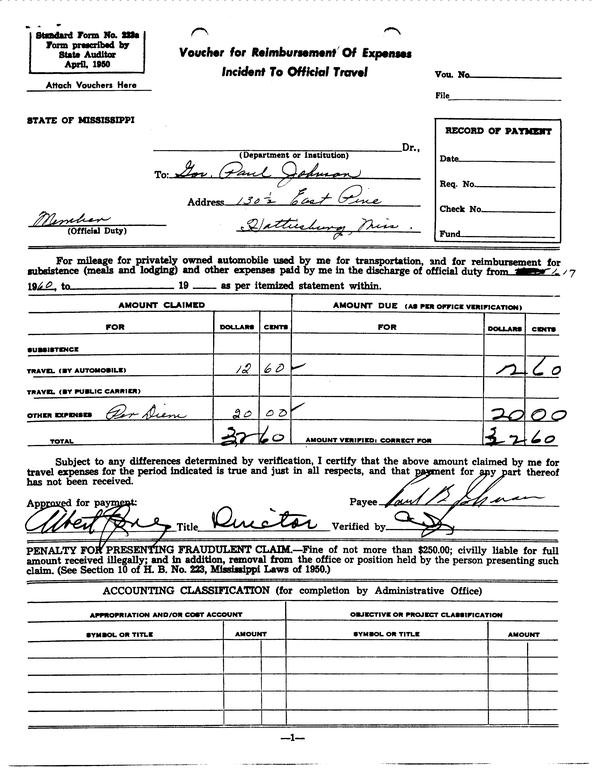 Standard Form No. 223a
Form prescribed by
State Auditor
April, 1950
Attach Vouchers Here
Voucher for Reimbursement Of Expenses
Incident To Official Travel
Vou. No.
File
STATE OF MISSISSIPPI
Dr.,
(Department or Institution)
To: Gov. Paul Johnson
Address 130½ East Pine
Hattiesburg, Miss.
Member
(Official Duty)
RECORD OF PAYMENT
Date
Req. No.
Check No.
Fund
For mileage for privately owned automobile used by me for transportation, and for reimbursement for
subsistence (meals and lodging) and other expenses paid by me in the discharge of official duty from 6, 17
1960, to 19 as per itemized statement within.
AMOUNT CLAIMED AMOUNT DUE (AS PER OFFICE VERIFICATION)
FOR DOLLARS CENTS FOR DOLLARS CENTS
SUBSISTENCE
TRAVEL (BY AUTOMOBILE) 12 60 12 60
TRAVEL (BY PUBLIC CARRIER)
OTHER EXPENSES Per Diem 20 00 20 00
TOTAL 32 60 AMOUNT VERIFIED: CORRECT FOR 32 60
Subject to any differences determined by verification, I certify that the above amount claimed by me for
travel expenses for the period indicated is true and just in all respects, and that payment for any part thereof
has not been received.
Approved for payment: Payee Paul B Johnson
Albert Jones Title Director Verified by
PENALTY FOR PRESENTING FRAUDULENT CLAIM.—Fine of not more than $250.00; civilly liable for full
amount received illegally; and in addition, removal from the office or position held by the person presenting such
claim. (See Section 10 of H. B. No. 223, Mississippi Laws of 1950.)
ACCOUNTING CLASSIFICATION (for completion by Administrative Office)
APPROPRIATION AND/OR COST ACCOUNT OBJECTIVE OR PROJECT CLASSIFICATION
SYMBOL OR TITLE AMOUNT SYMBOL OR TITLE AMOUNT
—1—